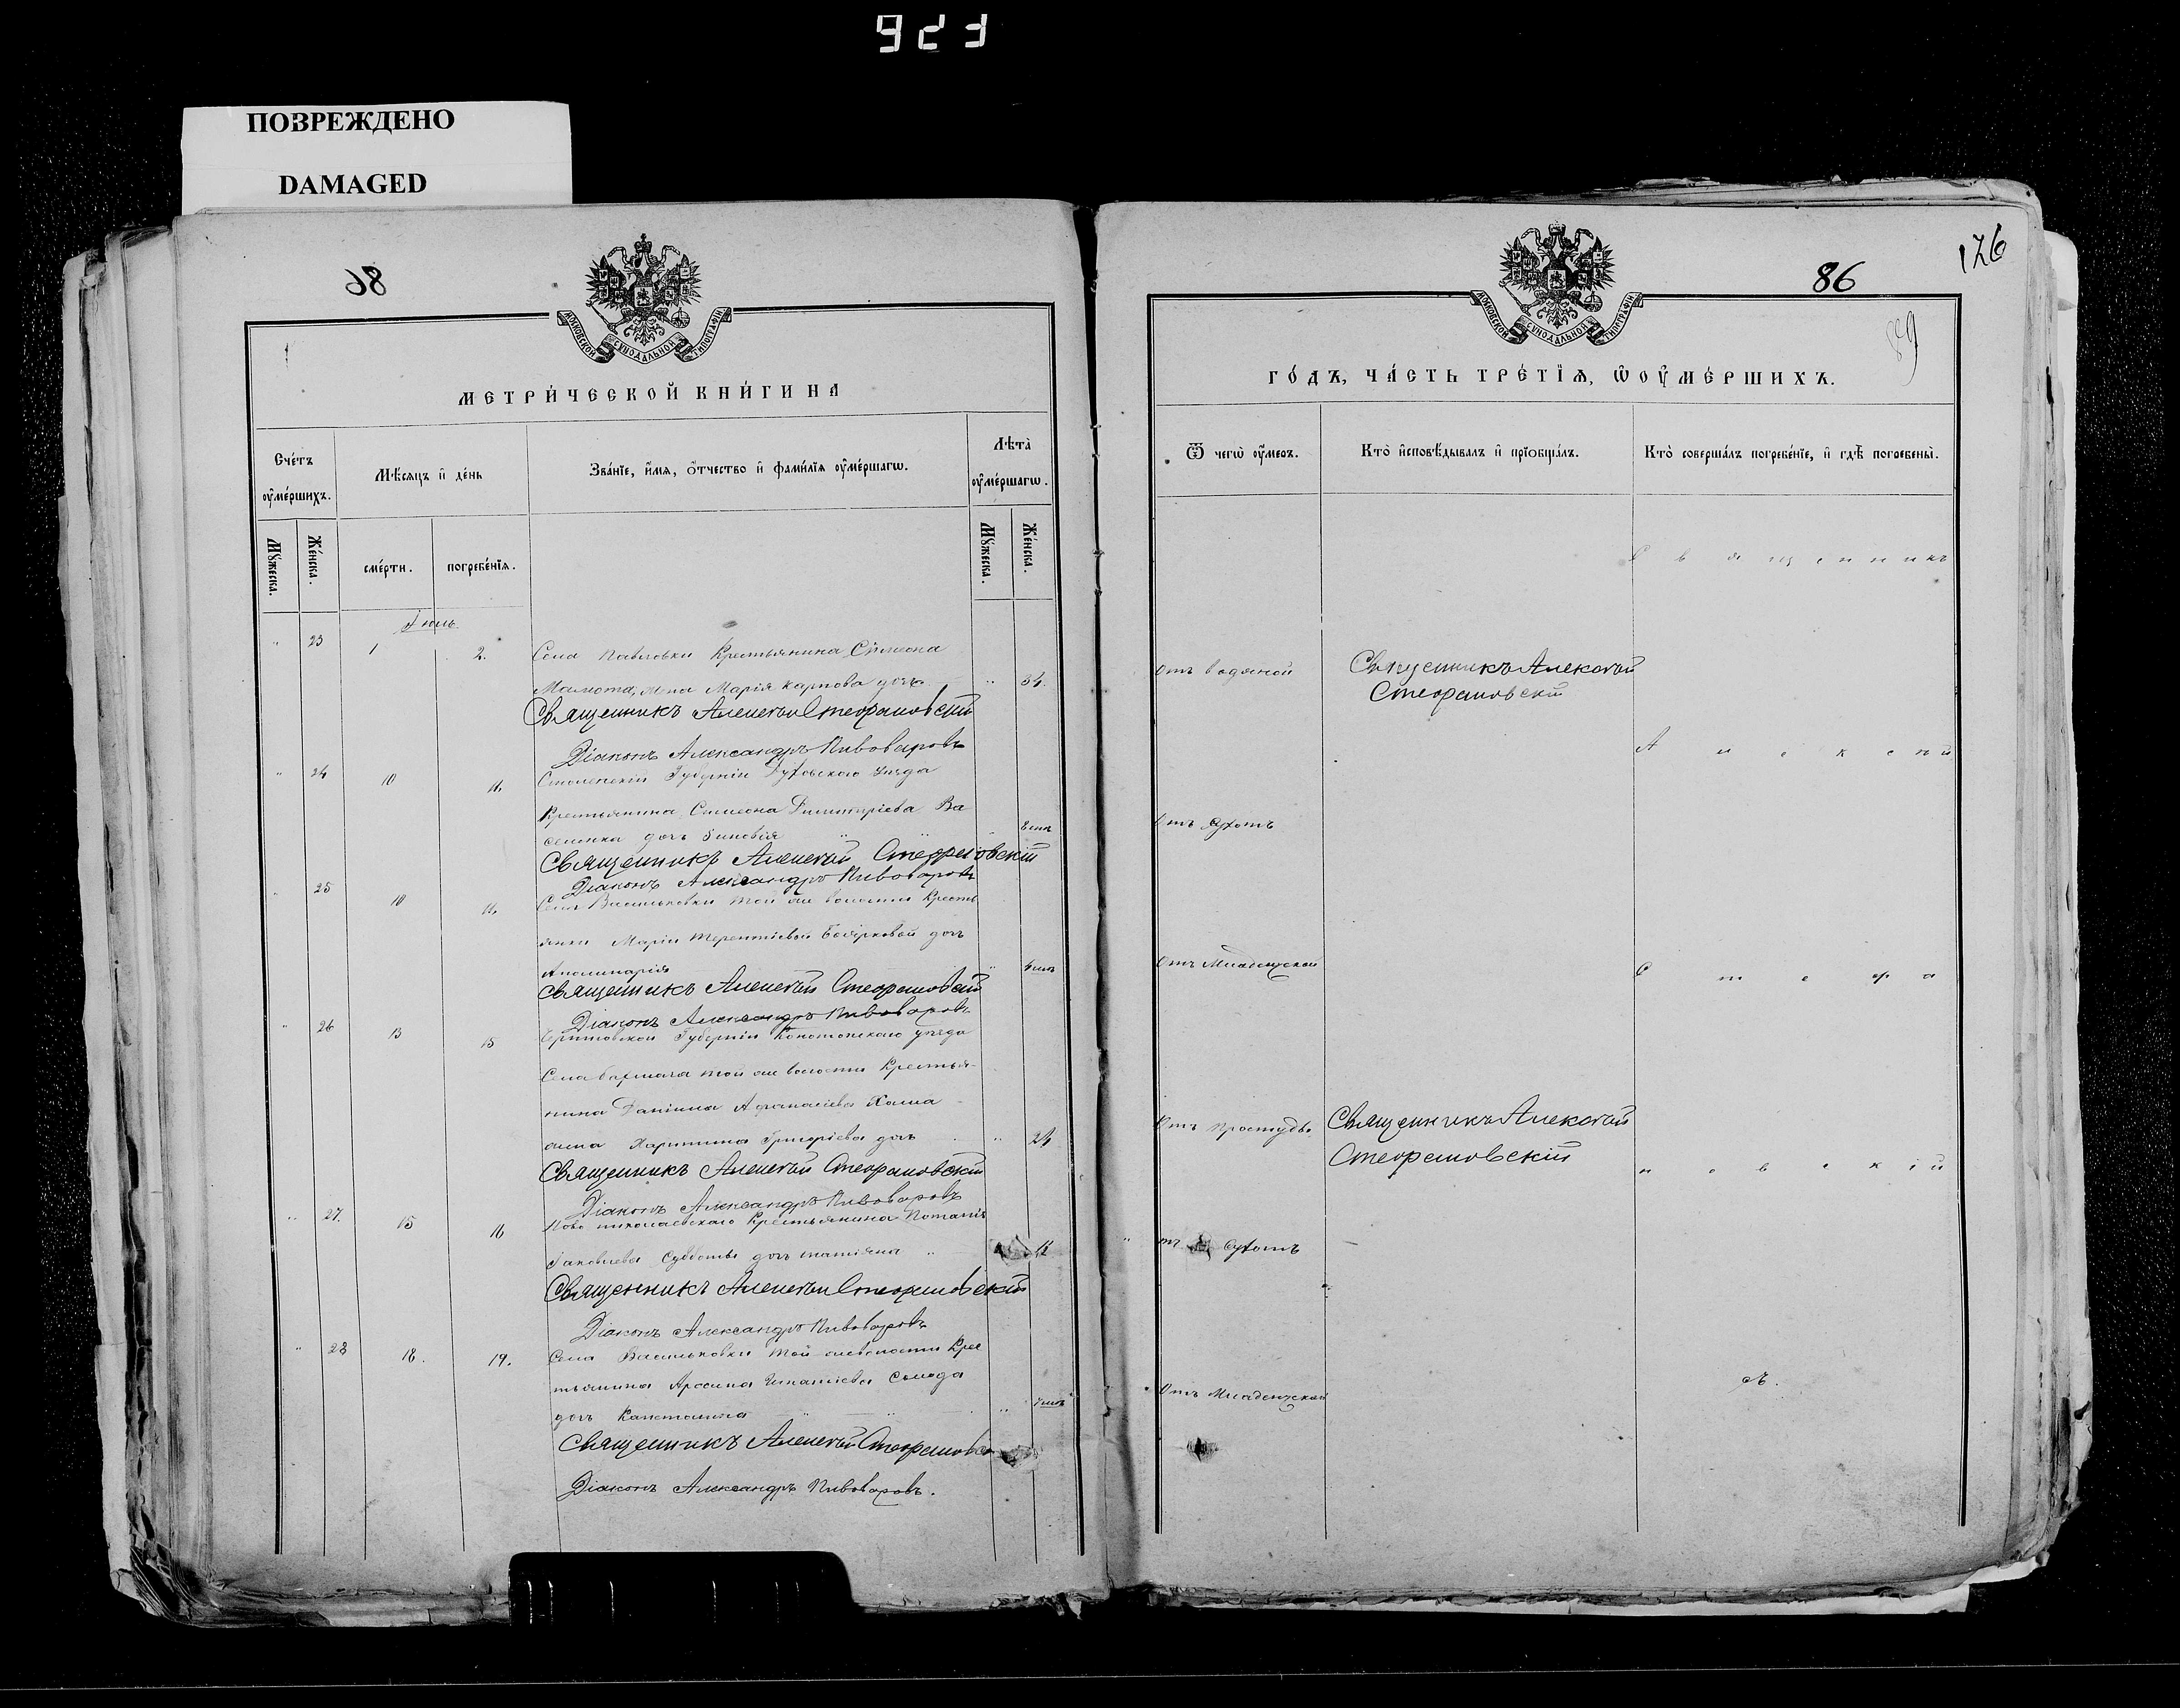 923
ПОВРЕЖДЕНО
DAMAGED
86
МОСКОВСКОЙ СѴНОДАЛЬНОЙ ТИПОГРАФІИ
МЕТРИ́ЧЕСКОЙ КНИ́ГИ НА
Сче́тъ ᲂу҆ме́ршихъ.
Мѣ́сяцъ и҆ де́нь
Зва́нїе, и҆́мя, ѻ҆́тчество и҆ фами́лїя ᲂу҆ме́ршагѡ.
Лѣ̑та̀ ᲂу҆ме́ршагѡ.
Мꙋ́жеска.
Же́нска.
сме́рти.
погребе́нїя.
Мꙋ́жеска.
Же́нска.
Іюль
" 23 1 2. Села Павловки Крестьянина Симеона
жена Марія Карпова дочь " 34.
Священникъ Алексѣй Стефановскій
Діаконъ Александръ Пивоваровъ
" 24 10 11. Смоленской Губерніи Духовского уѣзда
Крестьянина Симеона Димитріева Ва
дочь Зиновія
Священникъ Алексѣй Стефановскій
Діаконъ Александръ Пивоваровъ
" 25 10 11. Села Васильковки той же волости Кресть
янки Маріи Терентіевой дочь
Аполинарія
Священникъ Алексѣй Стефановскій
Діаконъ Александръ Пивоваровъ
" 26 13 15 Черниговской Губерніи Конотопскаго уѣзда
Села Бахмача той же волости Крестья-
нина Даніила Афанасіева
жена Харитина Григоріева дочь " 24
Священникъ Алексѣй Стефановскій
Діаконъ Александръ Пивоваровъ
" 27. 15 16 Ново николаевскаго Крестьянина
Іаковлева Субботы дочь татіана "
Священникъ Алексѣй Стефановскій
Діаконъ Александръ Пивоваровъ
" 28 18. 19. Села Васильковки той же волости Крес
тьянина Игнатіева
дочь
Священникъ Алексѣй
Діаконъ Александръ Пивоваровъ.
86
126
89
МОСКОВСКОЙ СѴНОДАЛЬНОЙ ТИПОГРАФІИ
ГО́ДЪ, ЧА́СТЬ ТРЕ́ТЇЯ, Ѡ҆ ᲂУ҆МЕ́РШИХЪ.
Ѿ чегѡ̀ ᲂу҆́меръ.
Кто̀ и҆сповѣ́дывалъ и҆ прїѡбща́лъ.
Кто̀ соверша́лъ погребе́нїе, и҆ гдѣ̀ погребены̀.
С в я щ е н н и к ъ
Отъ водяной Священникъ Алексѣй
Стефановскій
А л е к с ѣ й
Отъ Сухотъ
Отъ Младенческой
С т е ф а
Отъ простуды Священникъ Алексѣй
Стефановскій
н о в с к і й
Сухотъ
Отъ Младенческой